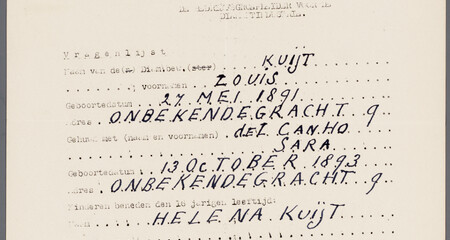 Vragenlijst
Naam van de(n) Diambew.(ster) KUIJT
voornamen LOUIS
Geboortedatum 27 MEI 1891
Adres ONBEKENDEGRACHT 9
Gehuwd met (naam en voornamen) de I. CANHO
SARA
Geboortedatum 13 OCTOBER 1893
Adres ONBEKENDEGRACHT 9
Kinderen beneden den 16 jarigen leeftijd:
HELENA KUIJT